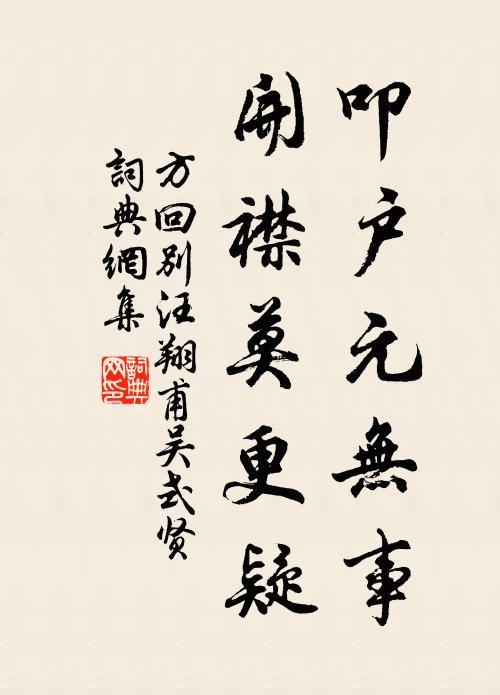 叩户元無事
開襟莫更疑
方回别汪翔甫吴式贤
詞典網集
詞典网印